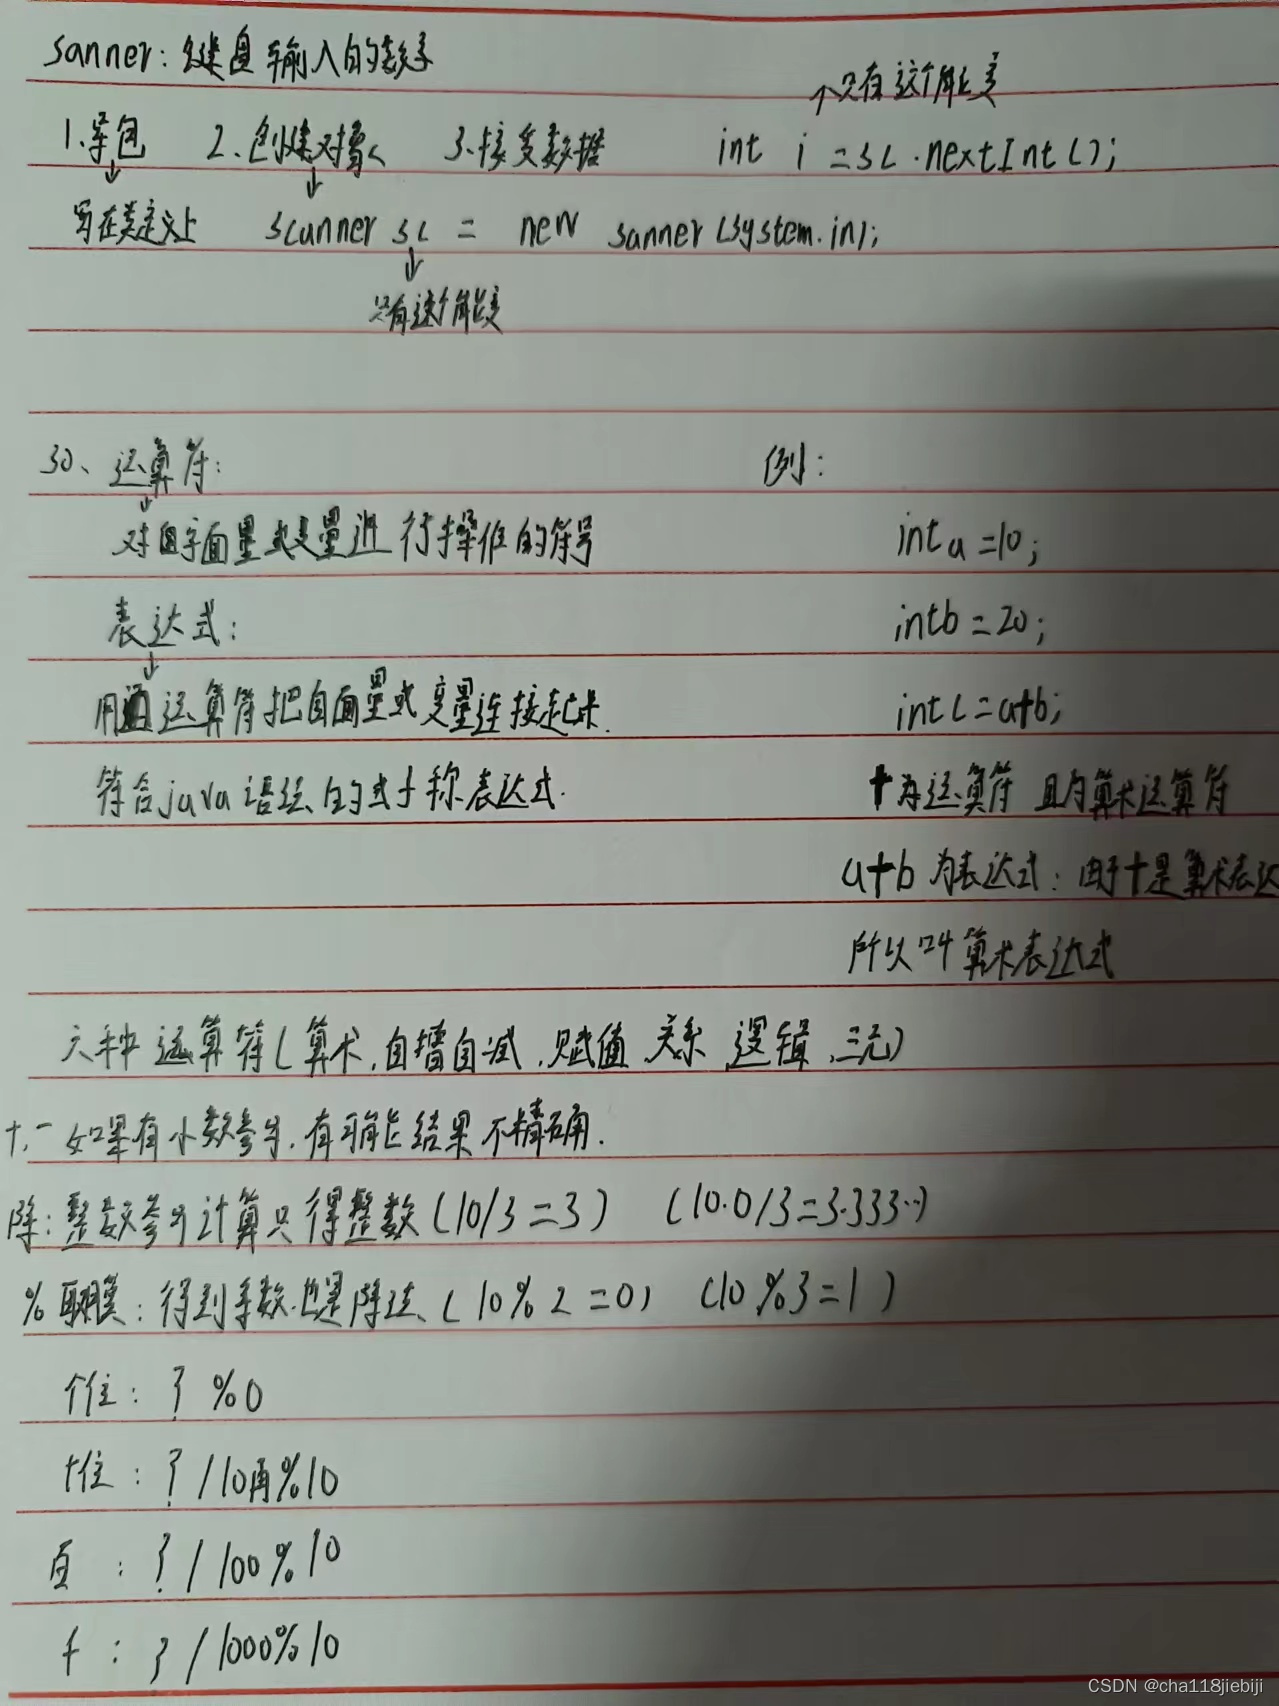 sanner：键盘输入的数字
↑只有这个能变
1.导包 2.创建对象 3.接受数据 int i = sc.nextInt();
写在类定义上 scanner sc = new sanner(system.in);
只有这个能变
30、运算符： 例：
对字面量或变量进行操作的符号 int a = 10;
表达式： int b = 20;
用运算符把自面量或变量连接起来. int c = a+b;
符合java语法的式子称表达式. +为运算符 且为算术运算符
a+b 为表达式：由于+是算术表达
所以叫算术表达式
六种运算符(算术,自增自减,赋值 关系 逻辑,三元)
+,- 如果有小数参与,有可能结果不精确.
除：整数参与计算只得整数(10/3=3) (10.0/3=3.333··)
% 取模：得到余数.也是除法(10%2=0) (10%3=1)
个位：? %0
十位：? /10再%10
百：? /100%10
千：? /1000%10
CSDN @cha118jiebiji